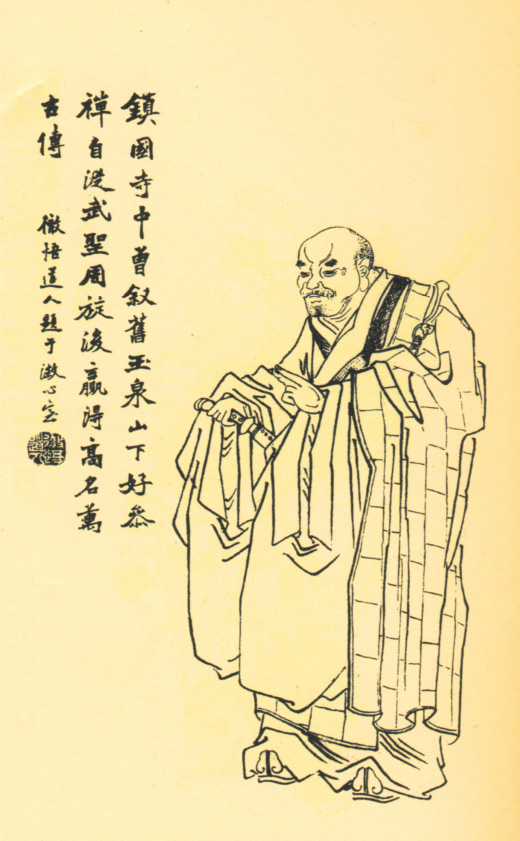 鎮國寺中曾叙舊玉泉山下好叅
禪自從武聖周旋後贏得髙名萬
古傳
徹悟道人題于漱心室